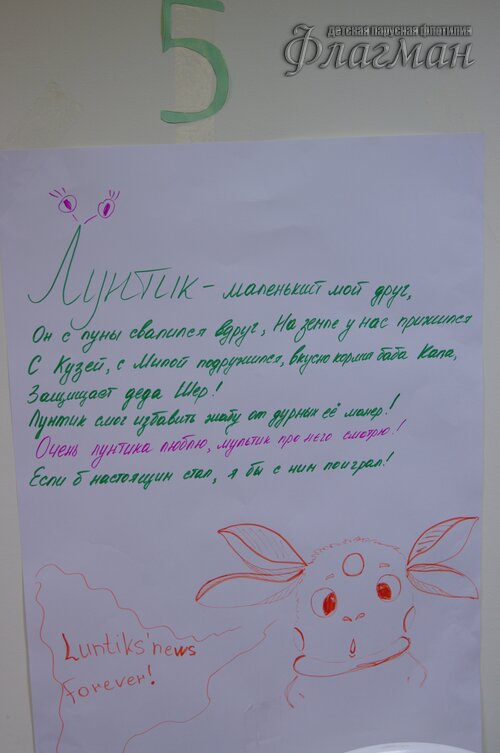 5
детская парусная флотилия
Флагман
Лунтик – маленький мой друг,
Он с луны свалился вдруг, На земле у нас прижился
С Кузей, с Милой подружился, вкусно кормил баба Капа,
Защищает деда Шер!
Лунтик смог избавить жабу от дурных её манер!
Очень лунтика люблю, мультик про него смотрю!
Если б настоящим стал, я бы с ним поиграл!
Luntiks'news
Forever!